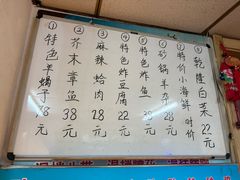 ① 特色羊蝎子 78元
② 芥末章鱼 38元
③ 麻辣蛤肉 28元
④ 特色炸豆腐 22元
⑤ 特色炸鱼 28元
⑥ 砂锅羊杂 28元
⑦ 特价小海鲜 时价
⑧ 乾隆白菜 22元